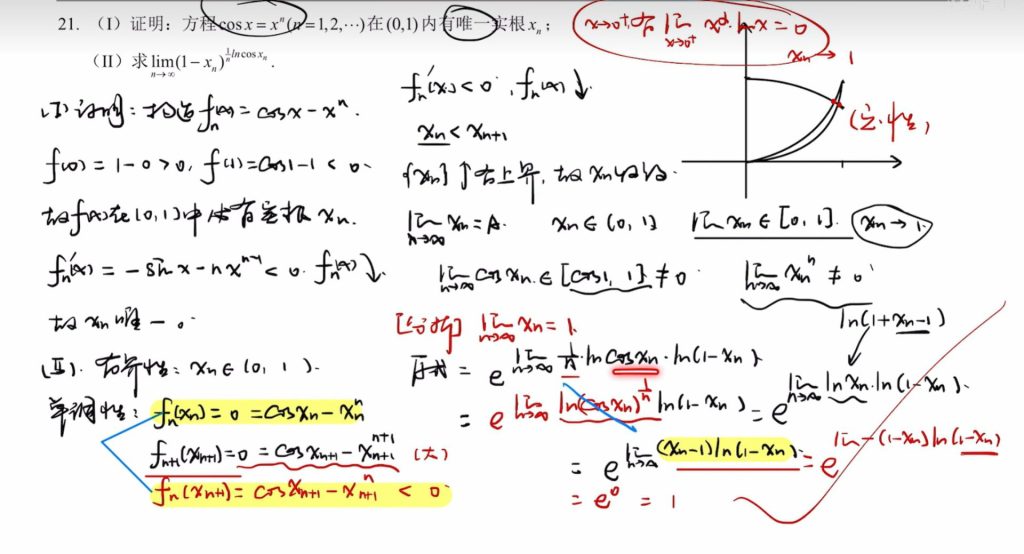 21. (I) 证明：方程cos x = xⁿ(n=1,2,⋯)在(0,1)内有唯一实根xₙ；
(II) 求lim_{n→∞}(1−xₙ)^{(1/n)ln cos xₙ}.
x→0⁺, 有 lim_{x→0⁺} x^α·ln x = 0
xₙ → 1
(I) 证明：构造 fₙ(x) = cos x − xⁿ.
f(0) = 1−0 > 0, f(1) = cos1 − 1 < 0.
故f(x)在(0,1)中必有实根 xₙ.
fₙ'(x) = −sin x − nxⁿ⁻¹ < 0. fₙ(x)↓
故 xₙ 唯一。
(II). 有界性：xₙ∈(0,1).
单调性：fₙ(xₙ) = 0 = cos xₙ − xₙⁿ
fₙ₊₁(xₙ₊₁) = 0 = cos xₙ₊₁ − xₙ₊₁ⁿ⁺¹ (大)
fₙ(xₙ₊₁) = cos xₙ₊₁ − xₙ₊₁ⁿ < 0
fₙ'(x) < 0, fₙ(x)↓
xₙ < xₙ₊₁
{xₙ}↑有上界, 故 xₙ收敛.
lim_{n→∞} xₙ = A. xₙ∈(0,1) lim xₙ∈[0,1]. xₙ→1.
lim_{n→∞} cos xₙ ∈ [cos1, 1] ≠ 0 lim_{n→∞} xₙⁿ ≠ 0
[分析] lim_{n→∞} xₙ = 1. ln(1+xₙ−1)
= e^{lim_{n→∞} (1/n)·ln cos xₙ·ln(1−xₙ)}
= e^{lim_{n→∞} ln(cos xₙ)^{1/n} ln(1−xₙ)} = e^{lim_{n→∞} ln xₙ·ln(1−xₙ)}
= e^{lim_{n→∞} (xₙ−1)ln(1−xₙ)} = e^{lim −(1−xₙ)ln(1−xₙ)}
= e⁰ = 1